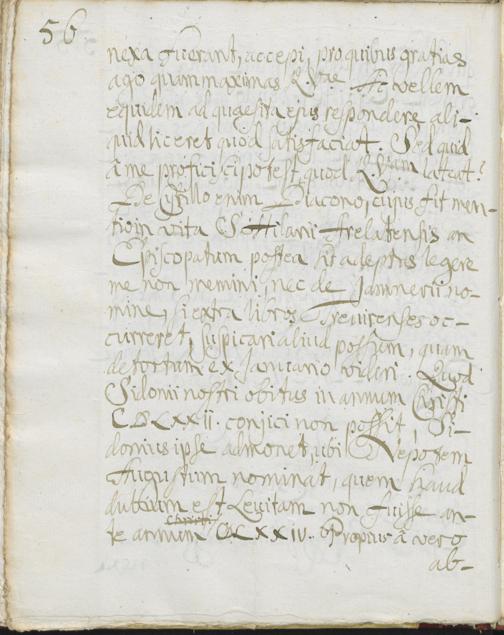 56
nexa fuerant, accepi, pro quibus gratias
ago quam maximas R. Vrae. Ac vellem
equidem ad quaesita ejus respondere ali-
quid liceret quod satisfaciat. Sed quid
à me proficisci potest, quod R. Vram lateat?
De Cyrillo enim Diacono, cujus fit men-
tio in vita S. Hilarii Arelatensis an
Episcopatum postea sit adeptus legere
me non memini, nec de Jamnerii no-
mine, si extra libros Trevirenses oc-
curreret, suspicari aliud possum, quam
detortum ex Januario videri. Quod
Sidonii nostri obitus in annum Christi
CDLXXII. conjici non possit, Si-
donius ipse admonet, ubi Nepotem
Augustum nominat, quem haud
dubium est Levitam non fuisse an-
te annum Christi CDLXXIV. Propius à vero
ab-